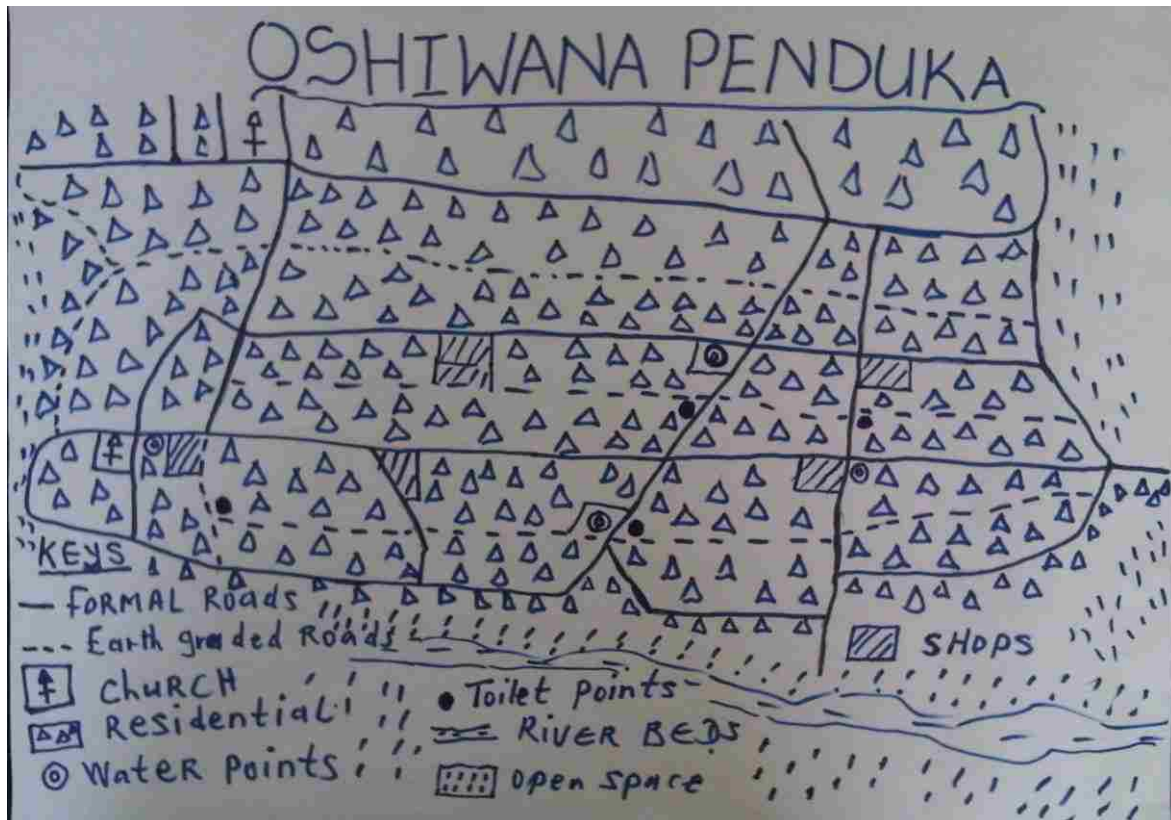 OSHIWANA PENDUKA
KEYS
FORMAL Roads
Earth graded Roads
ChURCH
Residential
Water Points
SHOPS
Toilet Points
RiVER BEDS
Open space